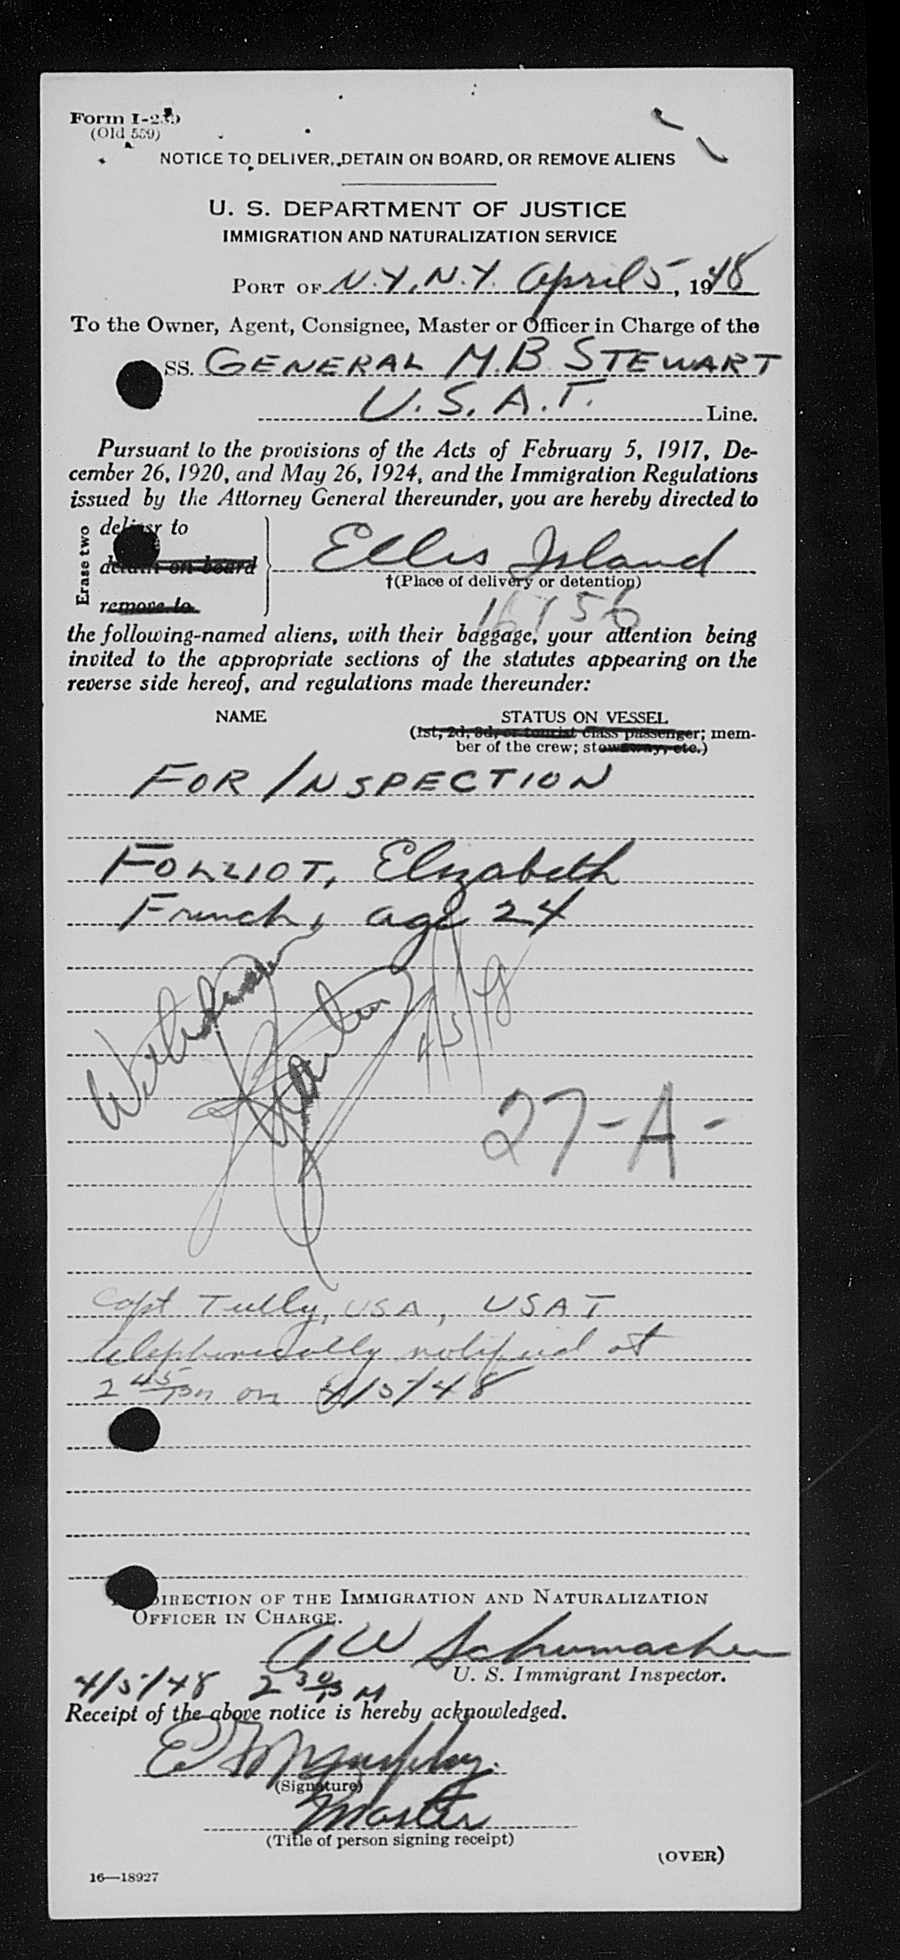 Form I-259
(Old 559)
NOTICE TO DELIVER, DETAIN ON BOARD, OR REMOVE ALIENS
U. S. DEPARTMENT OF JUSTICE
IMMIGRATION AND NATURALIZATION SERVICE
PORT OF N.Y., N.Y. April 5, 1948
To the Owner, Agent, Consignee, Master or Officer in Charge of the
SS. GENERAL M. B. STEWART
U. S. A. T. Line.
Pursuant to the provisions of the Acts of February 5, 1917, De-
cember 26, 1920, and May 26, 1924, and the Immigration Regulations
issued by the Attorney General thereunder, you are hereby directed to
Erase two
deliver to
detain on board
remove to
Ellis Island
†(Place of delivery or detention)
16156
the following-named aliens, with their baggage, your attention being
invited to the appropriate sections of the statutes appearing on the
reverse side hereof, and regulations made thereunder:
NAME STATUS ON VESSEL
(1st, 2d, 3d, or tourist class passenger; mem-
ber of the crew; stowaway, etc.)
FOR INSPECTION
FOLLIOT, Elizabeth
French, age 24
Withdrawn
4/5/48
27-A-
Capt Tully, USA, USAT
telephonically notified at
2 45 PM on 4/5/48
DIRECTION OF THE IMMIGRATION AND NATURALIZATION
OFFICER IN CHARGE.
A W Schumacher
U. S. Immigrant Inspector.
4/5/48 2 30 PM
Receipt of the above notice is hereby acknowledged.
(Signature)
Master
(Title of person signing receipt)
(OVER)
16—18927